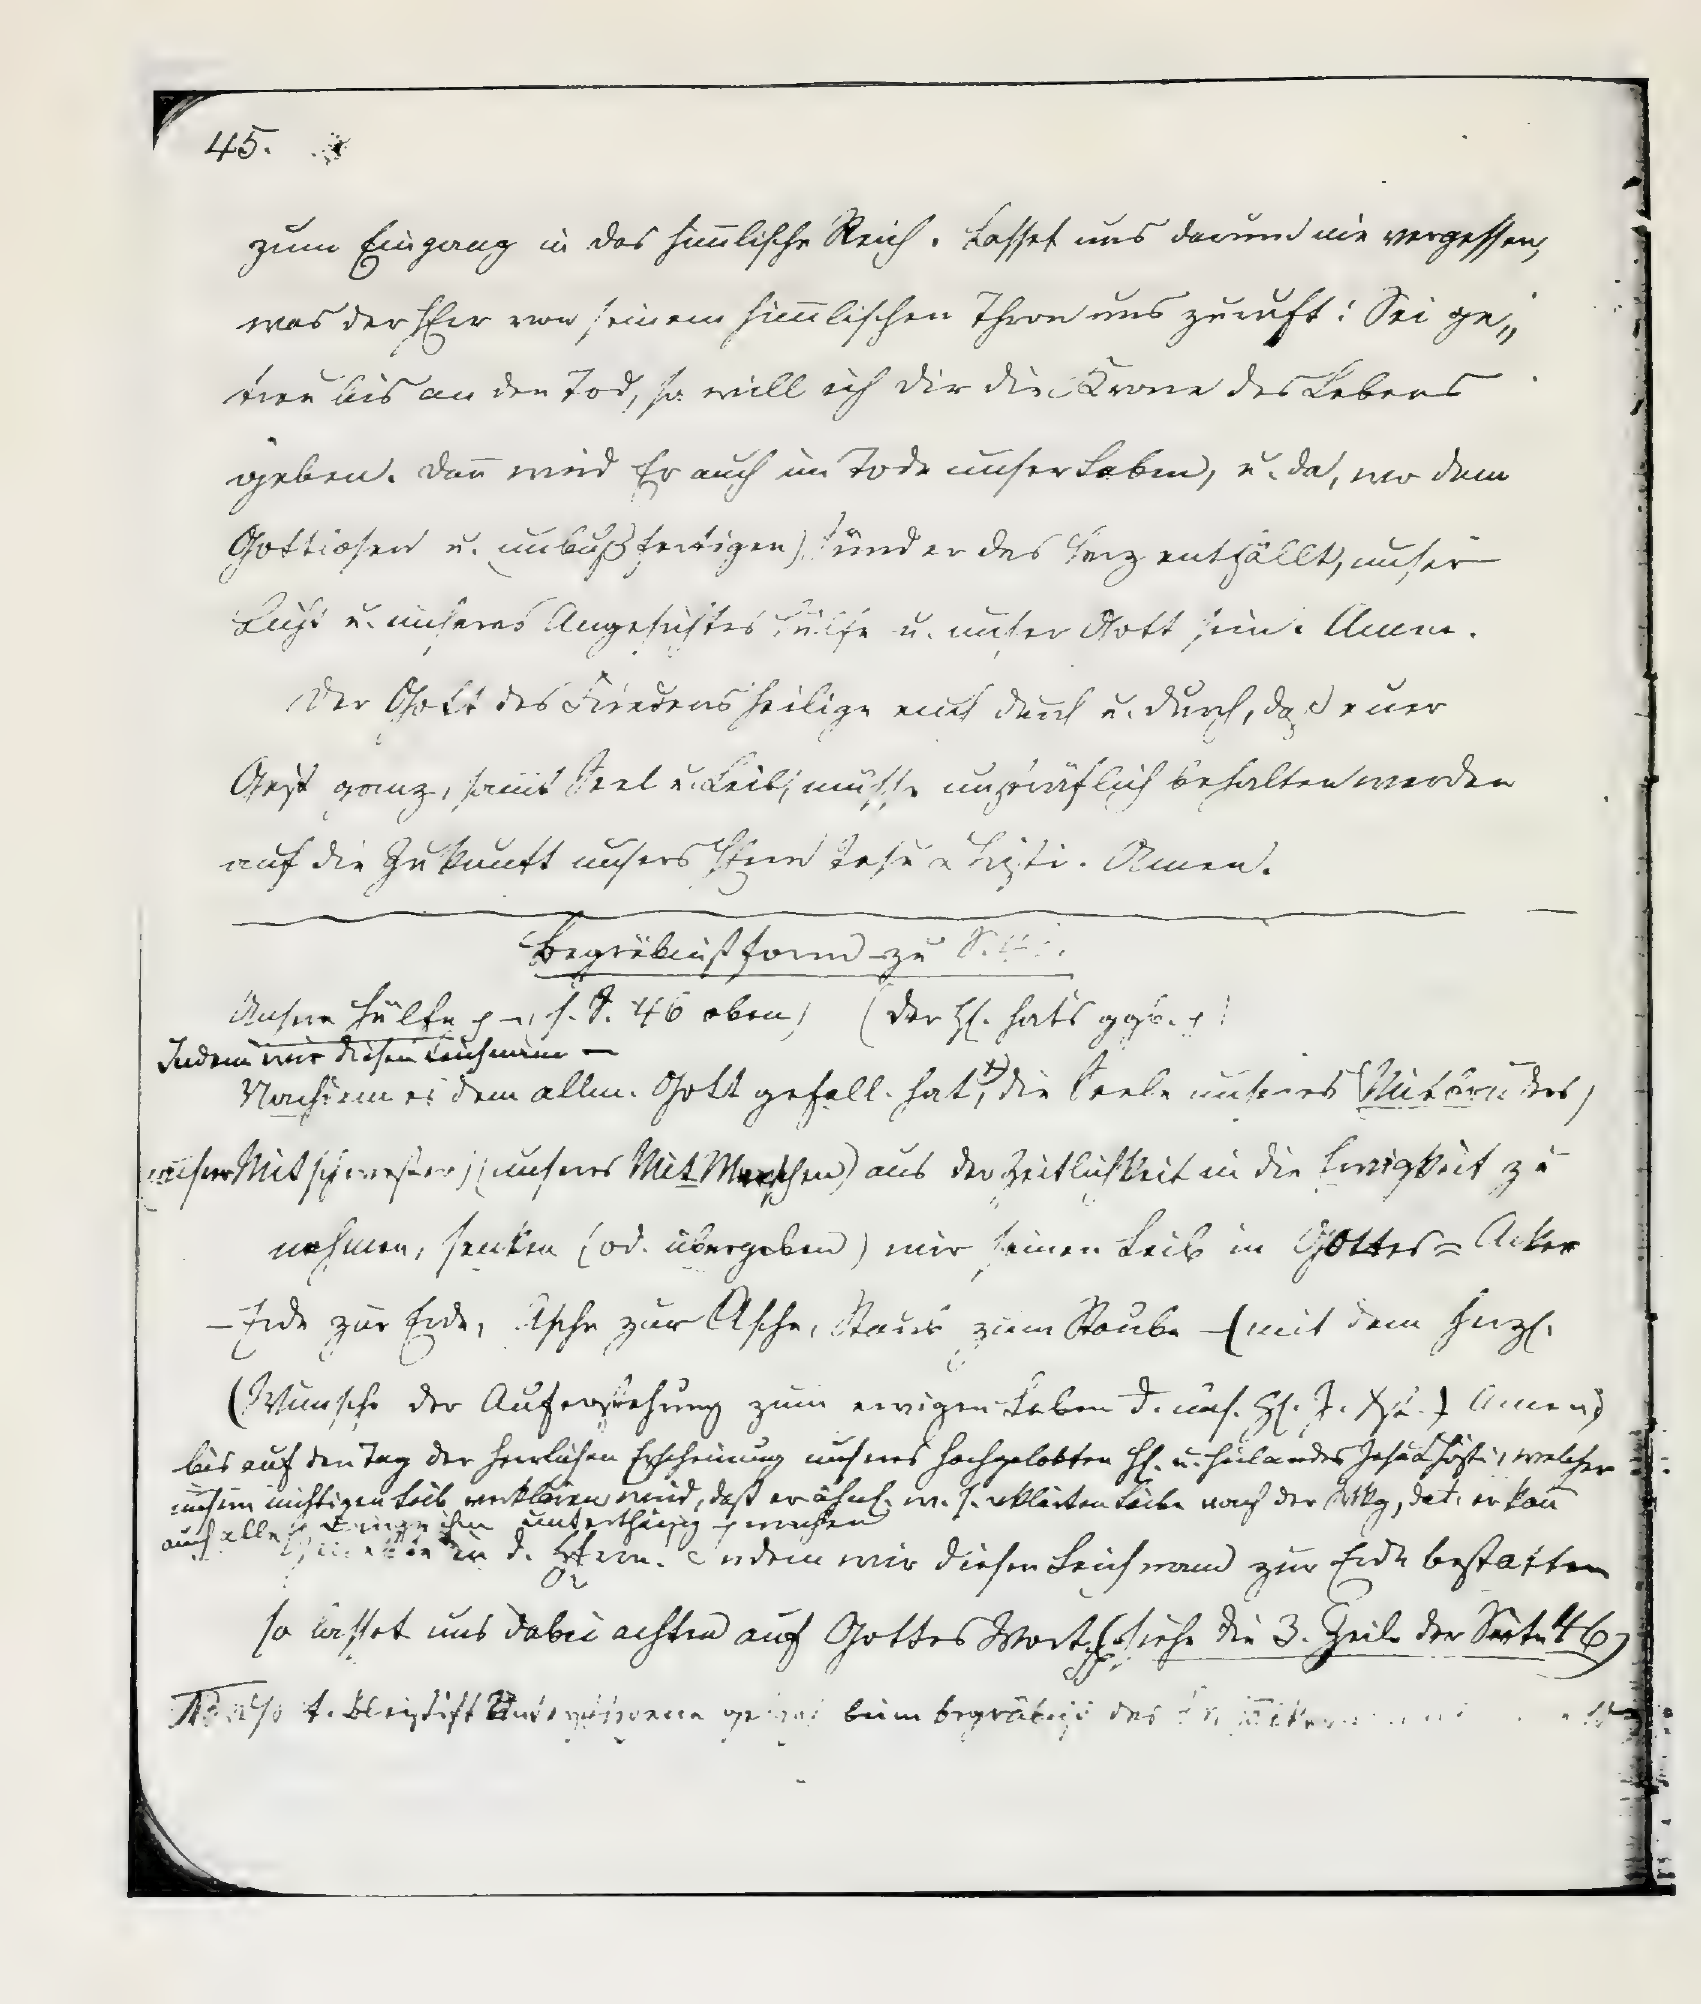 45.
zum Eingang in das himlische Reich. Lasset uns darum nie vergessen,
was der HErr von seinem himlischen Thron uns zuruft: Sei ge„
treu bis an den Tod, so will ich dir die Krone des Lebens
geben. Dan wird Er auch im Tode unser Leben, u. da, wo dem
Gottlosen u. unbußfertigen Sünder das Herz entfällt, unser
Licht u. unseres Angesichtes Hülfe u. unser Gott sein. Amen.
Der Gott des Friedens heilige euch durch u. durch, daß euer
Geist ganz, samt Seel u. Leib, müsse unsträflich behalten werden
auf die Zukunft unsers HErrn Jesu Christi. Amen.
Begräbnißform zu
Unsere Hülfe p – s. S. 46 oben) (der H. hat's geg.
Indem wir diesen Leichnam –
Nachdem es dem allm. Gott gefall. hat, die Seele unseres Mitbruders,
unsrer Mitschwester) (unseres MitMenschen) aus der Zeitlichkeit in die Ewigkeit zu
nehmen, senken (od. übergeben) wir seinen Leib in Gottes=Acker
– Erde zur Erde, Asche zur Asche, Staub zum Staube – (mit dem herzl.
(Wunsche der Auferstehung zum ewigen Leben d. uns. H. J. Chr. Amen)
bis auf den Tag der herrlichen Erscheinung unseres hochgelobten H. u. Heilandes Jesu Christi, welcher
unsern nichtigen Leib verklären wird, daß er ähnl. w. s. verklärten Leibe nach der Wkg, da er kan
auch alle Dinge ihm unterthänig machen
in d. HErrn. Indem wir diesen Leichnam zur Erde bestatten
so lasset uns dabei achten auf Gottes Wort (siehe die 3. Zeile der Seite 46)
beim Begräbniß des